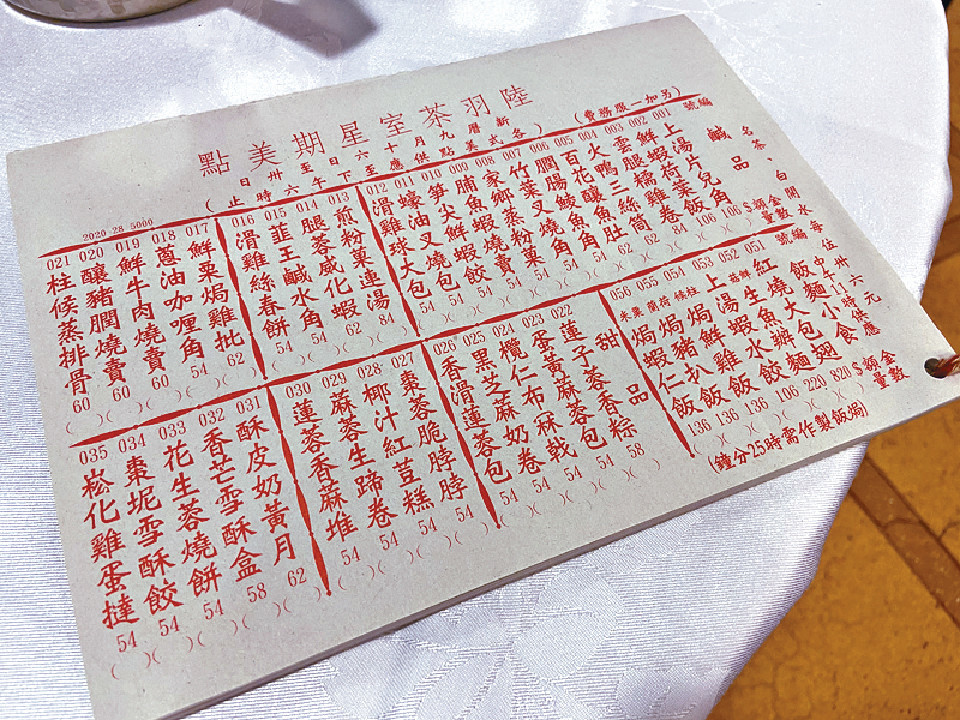 陸羽茶室星期美點
新曆九月十六日至卅日
(各式美點供應至下午六時止)
(另加一服務費)
名茶,白開水每位卅六元
編號 鹹品 金額$ 數量
001 上湯片兒角 106
002 鮮蝦荷葉飯 106
003 雲腿橘雞卷 84
004 火鴨三絲筒 62
005 百花釀魚肚 62
006 膶腸鯪魚角 54
007 竹葉叉燒角 54
008 家鄉蒸粉菓 54
009 脯魚蝦燒賣 54
010 筍尖鮮蝦餃 54
011 蠔油叉燒包 54
012 滑雞球大包 54
013 煎粉菓連湯 84
014 腿蓉威化蝦 62
015 韮王鹹水角 54
016 滑雞絲春餅 54
017 鮮粟焗雞批 62
018 蔥油咖喱角 54
019 鮮牛肉燒賣 60
020 釀豬膶燒賣 60
021 柱候蒸排骨 60
2020-28 5000
編號 飯麵小食 中午11時供應 金額$ 數量
051 紅燒大包翅 820
052 鮮菇生魚辦麵 220
053 上湯蝦水餃 106
054 柱候焗鮮雞飯 136
055 荷蘭焗豬扒飯 136
056 粟米焗蝦仁飯 136
(焗飯製作需時25分鐘)
甜品
022 蓮子蓉香粽 58
023 蛋黃蔴蓉包 54
024 欖仁布冧戟 54
025 黑芝麻奶卷 54
026 香滑蓮蓉包 54
027 棗蓉脆脖脖 54
028 椰汁紅荳糕 54
029 蔴蓉生蹄卷 54
030 蓮蓉香麻堆 54
031 酥皮奶黃月 62
032 香芒雪酥盒 58
033 花生蓉燒餅 54
034 棗坭雪酥餃 54
035 崧化雞蛋撻 54